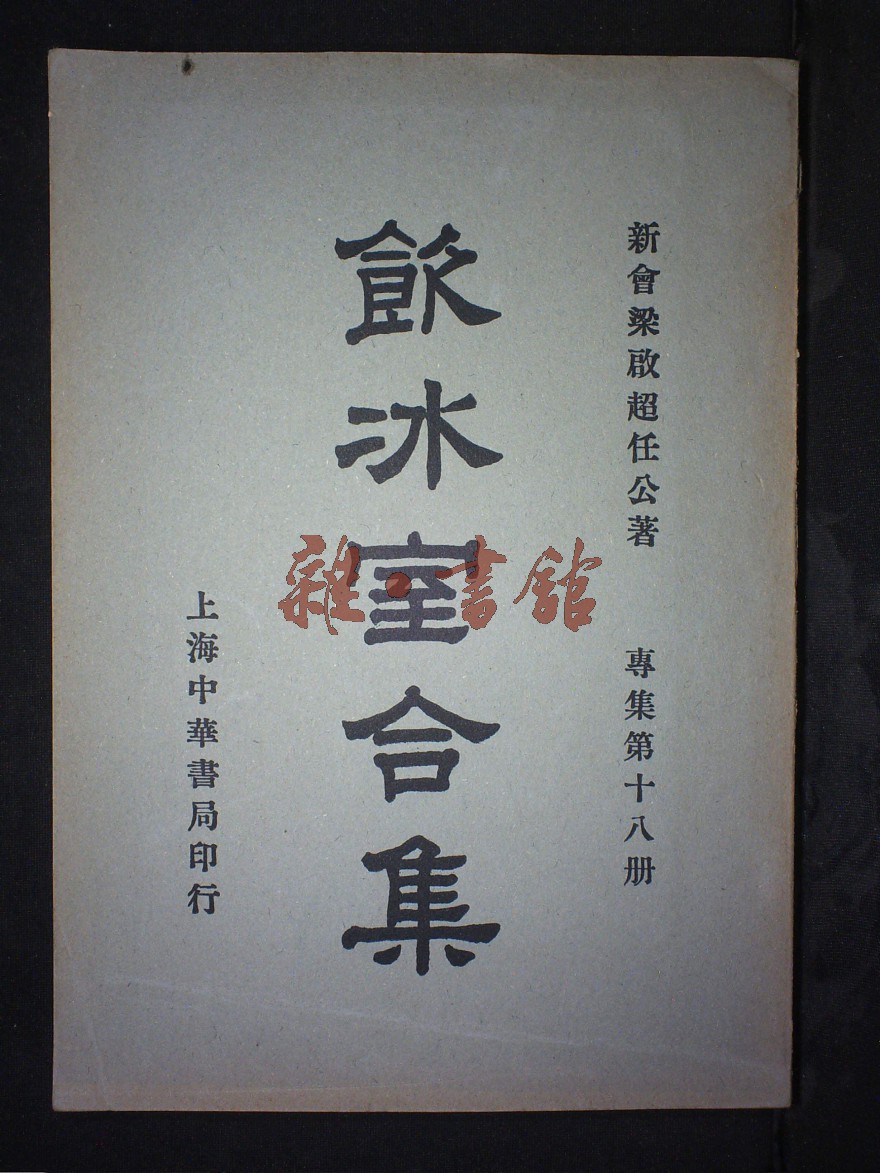 新會梁啟超任公著
專集第十八册
飲冰室合集
上海中華書局印行
雜·書館